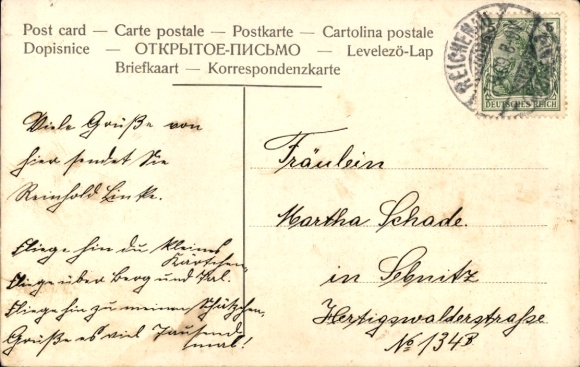 Post card — Carte postale — Postkarte — Cartolina postale
Dopisnice — ОТКРЫТОЕ-ПИСЬМО — Levelező-Lap
Briefkaart — Korrespondenzkarte
REICHENAU
DEUTSCHES REICH
5
Viele Grüße von
hier sendet Sie
Reinhold Linke.
Fliege hin du kleines
Kärtchen,
Fliege über Berg und Tal.
Fliege hin zu meinem Schätzchen,
Grüße es viel Tausend
mal!
Fräulein
Martha Schade.
in Sebnitz
Hertigswalderstraße
No 134B